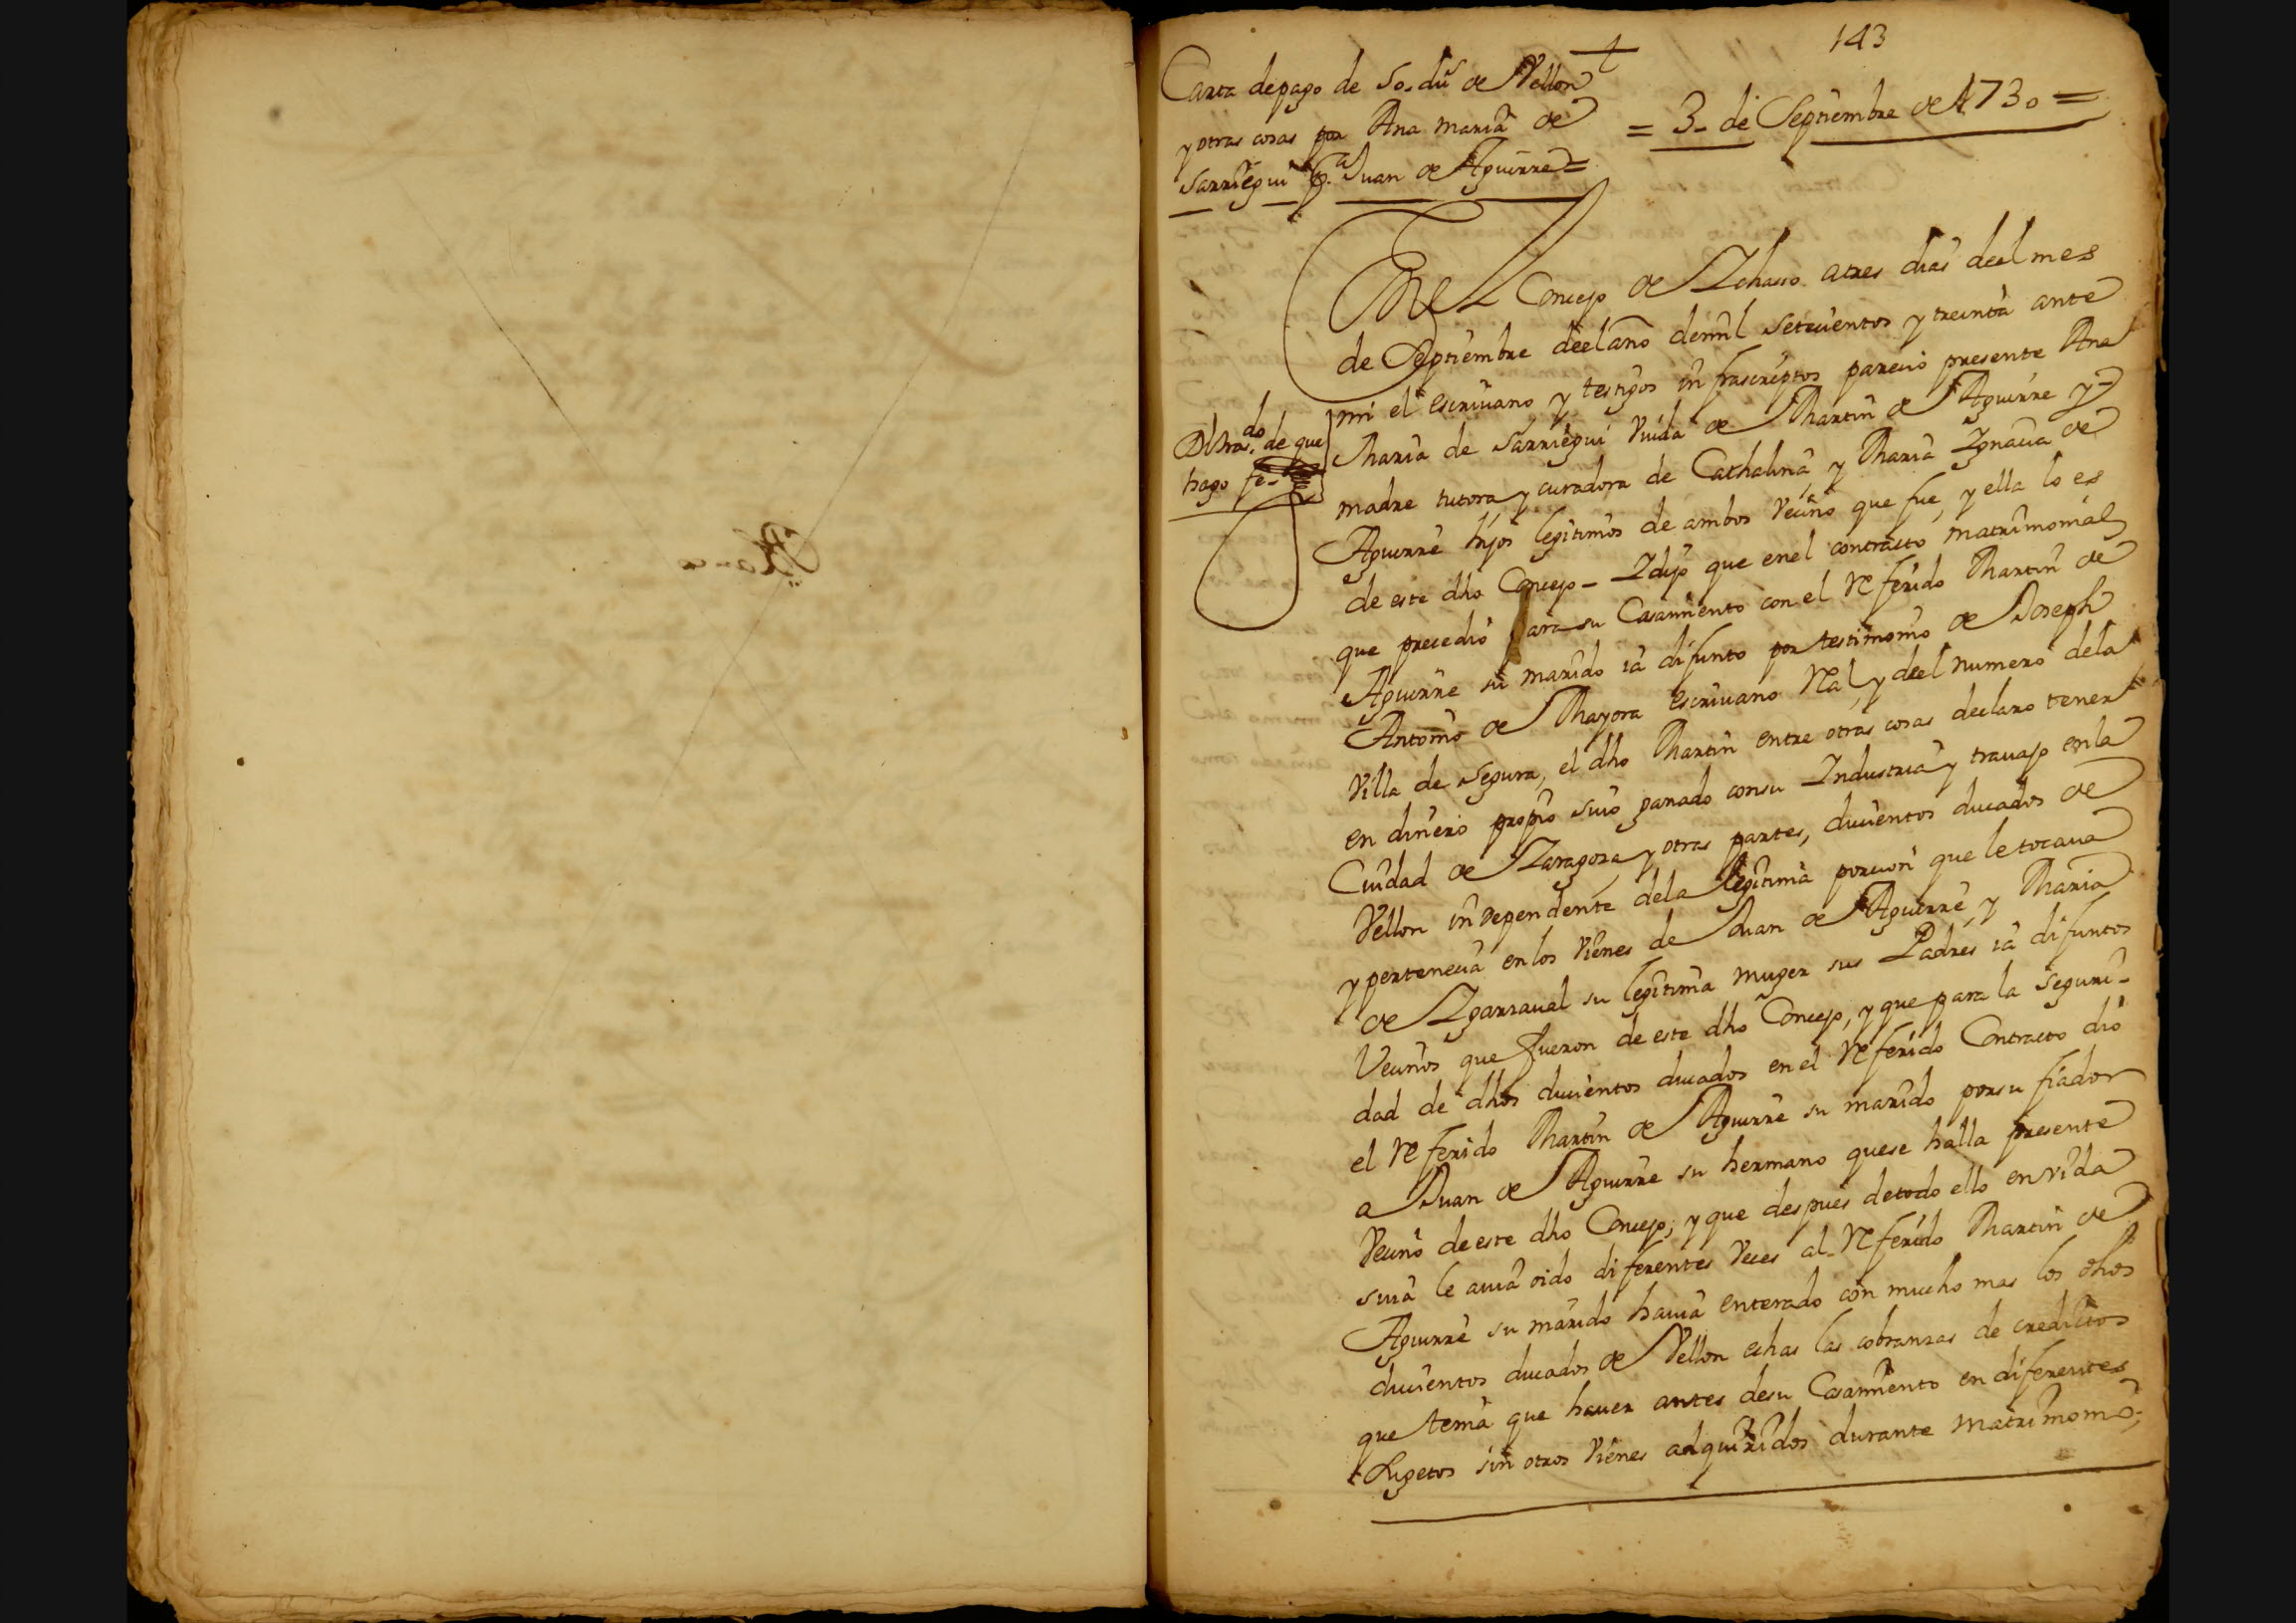 143
Carta depago de 50. dus de Vellon
y otras cosas por Ana maria de
Sarriegui Pa. Juan de Aguirre=
= 3. de Septiembre de 1730 =
En el Concejo de Ichaso atres dias deel mes
de Septiembre deel año demil setecientos y treinta ante
mi el escriuano y testigos infrascriptos parecio presente Ana
Maria de Sarriegui Viuda de Martin de Aguirre y
madre tutora, y curadora de Cathalina, y Maria Ignacia de
Aguirre hijos legitimos de ambos Vecino que fue, y ella lo es
de este dho Concejo - I dijo que enel contracto matrimonial
que precedio para su Casamiento con el Referido Martin de
Aguirre su marido ia difunto por testimonio de Joseph
Antonio de Mayora escriuano Rl, y deel numero dela
Villa de Segura, el dho Martin entre otras cosas declaro tener
en dinero propio suio ganado consu Industria y trauajo enla
Ciudad de Zaragoza, y otras partes, ducientos ducados de
Vellon independente dela legitima porcion que le tocaua
y pertenecia enlos Vienes de Juan de Aguirre, y Maria
de Igarraual su legitima muger sus Padres ia difuntos
Vecinos que fueron de este dho Concejo, y que para la seguri-
dad de dhos ducientos ducados en el Referido Contracto dio
el Referido Martin de Aguirre su marido porsu fiador
a Juan de Aguirre su hermano quese halla presente
Vecino de este dho Concejo; y que despues detodo ello en vida
suia le auia oido diferentes Veces al Referido Martin de
Aguirre su marido hauia enterado con mucho mas los dhos
ducientos ducados de Vellon echas las cobranzas de creditos
que tenia que hauer antes desu Casamiento en diferentes
sugetos sin otros Vienes adquiridos durante matrimonio;
do
de que
hago fe-